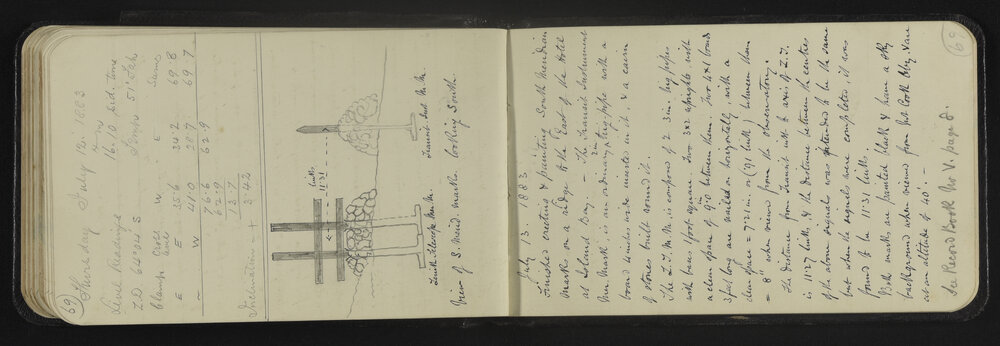 69
Thursday July 12. 1883
Level Readings 16.10 sid. time
Z.D. 60°30' S
Clamp West
E W E Same
E 35.6 34.2 69.8
~ W 41.0 28.7 69.7
76.6 62.9
62.9
13.7
Inclination + 3.42
links
11.31
Zenith Telescope Mer. Mk.
Transit Inst. M. M.
View of S. merid. marks looking South.
69
July 13. 1883
Finished erecting & painting South Meridian
Marks on a ridge to the East of the Hotel
at Island Bay. – The Transit Instrument
Mer. Mark is an ordinary 2 in gutting pipe with a
board 4 inches wide inserted in it & a cairn
of stones built round it.
The Z.T. M. M. is composed of 2 3 in. big pipes
with bases 1 foot square. Two 3x2 uprights with
a clear space of 9.0 in between them. Two 4x1 boards
3 feet long are nailed on horizontally, with a
clear space = 7.21 in or (.91 link) between them
= 8" when viewed from the observatory.
The distance from Transit inst. to axis of Z.T.
is 11.27 links, & the distance between the centres
of the above signals was intended to be the same
but when the signals were completed, it was
found to be 11.31 links
Both marks are painted black & have a sky
background when viewed from Mt Cook Obsy. & are
at an altitude of 40' –
See Record Book No V. page 8.